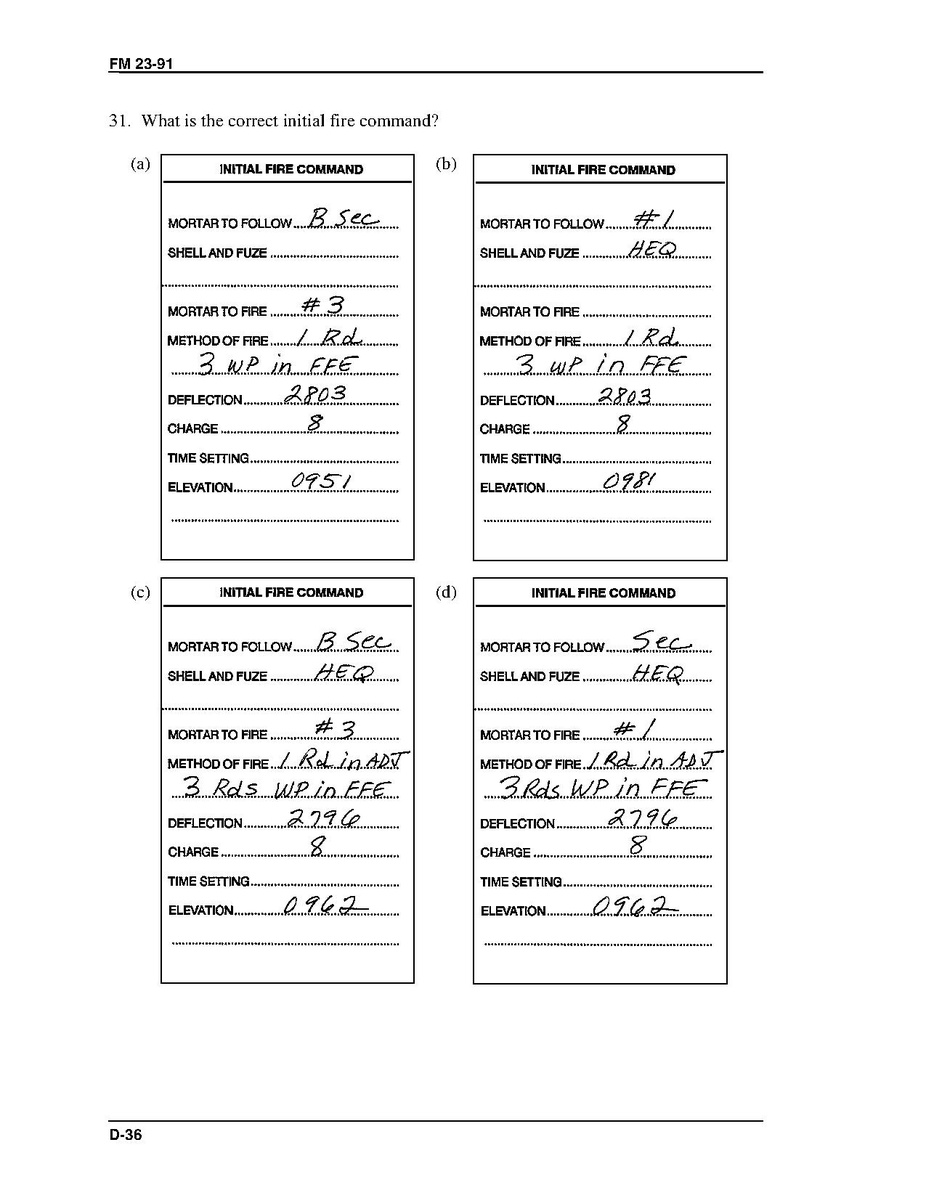 FM 23-91
31. What is the correct initial fire command?
(a)
INITIAL FIRE COMMAND
MORTAR TO FOLLOW....B Sec
SHELL AND FUZE
MORTAR TO FIRE # 3
METHOD OF FIRE 1 Rd
3 WP in FFE
DEFLECTION 2803
CHARGE 8
TIME SETTING
ELEVATION 0951
(b)
INITIAL FIRE COMMAND
MORTAR TO FOLLOW #1
SHELL AND FUZE HEQ
MORTAR TO FIRE
METHOD OF FIRE 1 Rd
3 WP in FFE
DEFLECTION 2803
CHARGE 8
TIME SETTING
ELEVATION 0981
(c)
INITIAL FIRE COMMAND
MORTAR TO FOLLOW B Sec
SHELL AND FUZE HEQ
MORTAR TO FIRE # 3
METHOD OF FIRE 1 Rd in ADJ
3 Rds WP in FFE
DEFLECTION 2796
CHARGE 8
TIME SETTING
ELEVATION 0962
(d)
INITIAL FIRE COMMAND
MORTAR TO FOLLOW Sec
SHELL AND FUZE HEQ
MORTAR TO FIRE #1
METHOD OF FIRE 1 Rd in ADJ
3 Rds WP in FFE
DEFLECTION 2796
CHARGE 8
TIME SETTING
ELEVATION 0962
D-36